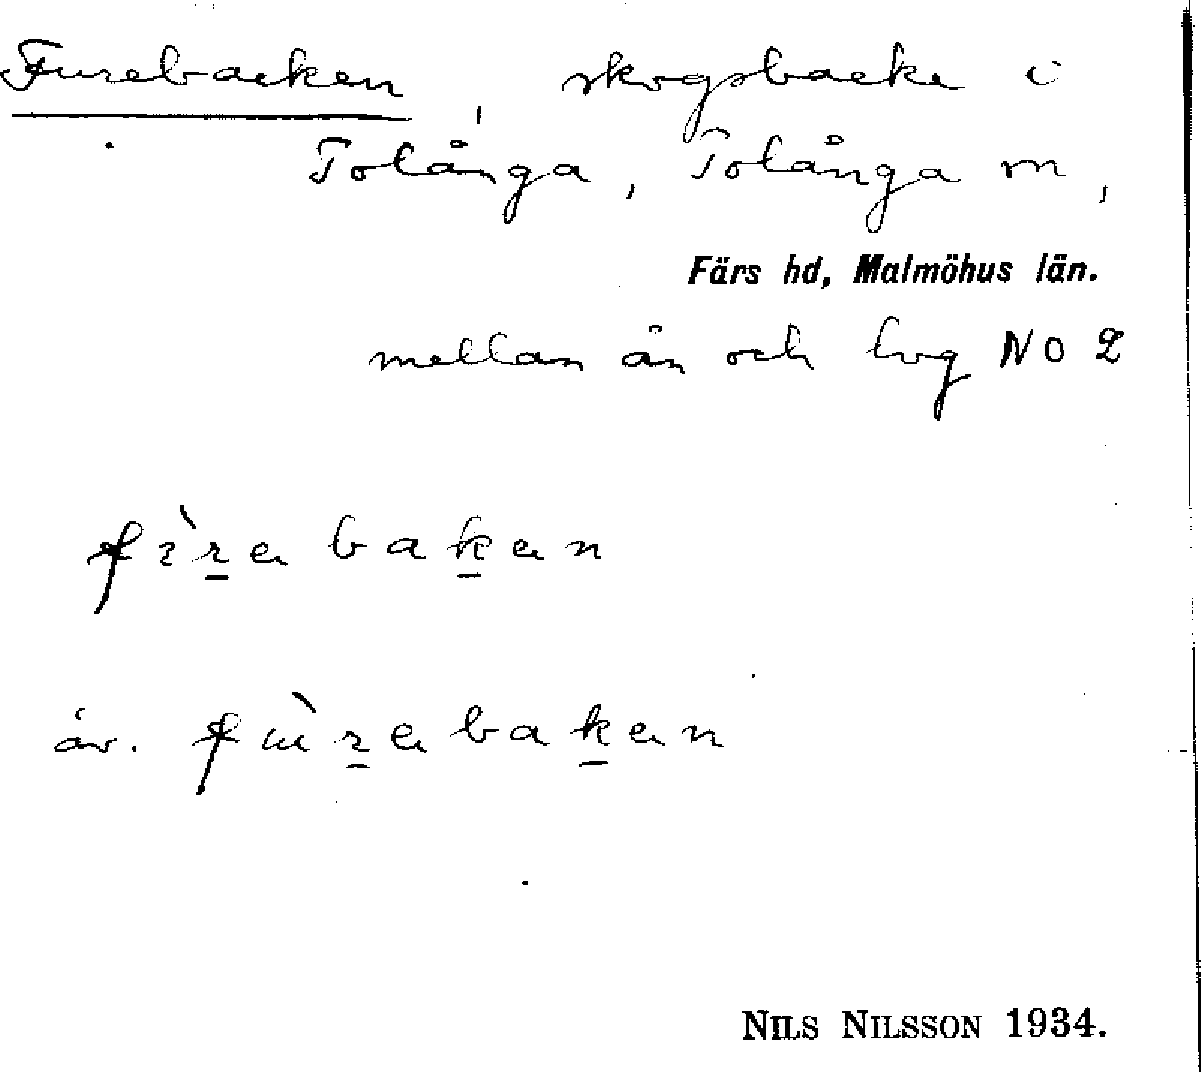 Furebacken, skogsbacke i
Tolånga, Tolånga sn,
Färs hd, Malmöhus län.
mellan ån och lvg No 2
baken
äv. baken
NILS NILSSON 1934.